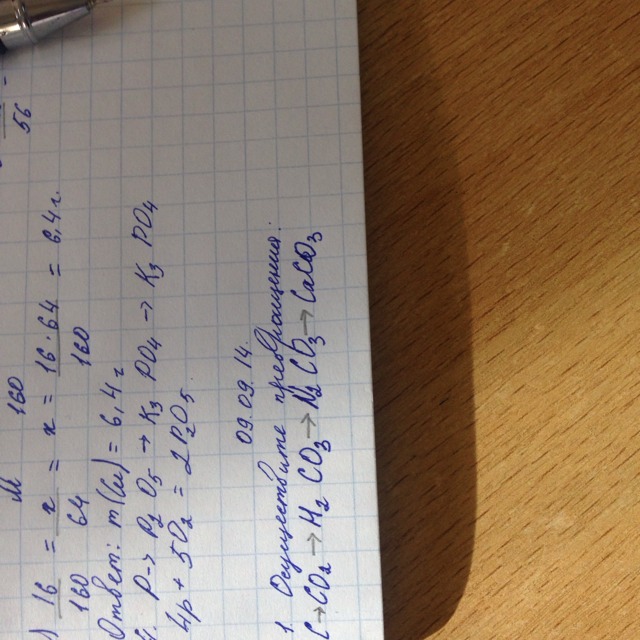 56
М 160
) 16 = x = x = 16·64 = 6,4 г.
160 64 160
Ответ: m(Cu) = 6,4 г
P → P2O5 → K3PO4 → K3PO4
4p + 5O2 = 2P2O5
09.09.14.
1. Осуществите превращения:
C → CO2 → H2CO3 → Na2CO3 → CaCO3